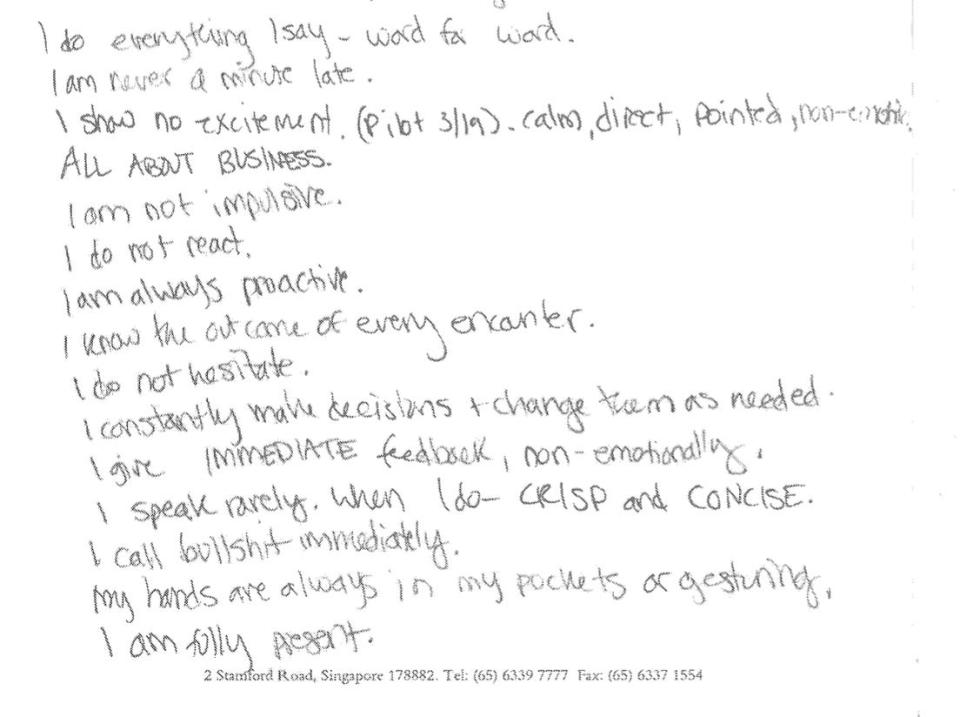 I do everything I say – word for word.
I am never a minute late.
I show no excitement. (Pilot 3/19). calm, direct, pointed, non-emotional.
ALL ABOUT BUSINESS.
I am not impulsive.
I do not react.
I am always proactive.
I know the outcome of every encounter.
I do not hesitate.
I constantly make decisions + change them as needed.
I give IMMEDIATE feedback, non-emotionally.
I speak rarely. When I do – CRISP and CONCISE.
I call bullshit immediately.
My hands are always in my pockets or gesturing.
I am fully present.
2 Stamford Road, Singapore 178882. Tel: (65) 6339 7777 Fax: (65) 6337 1554